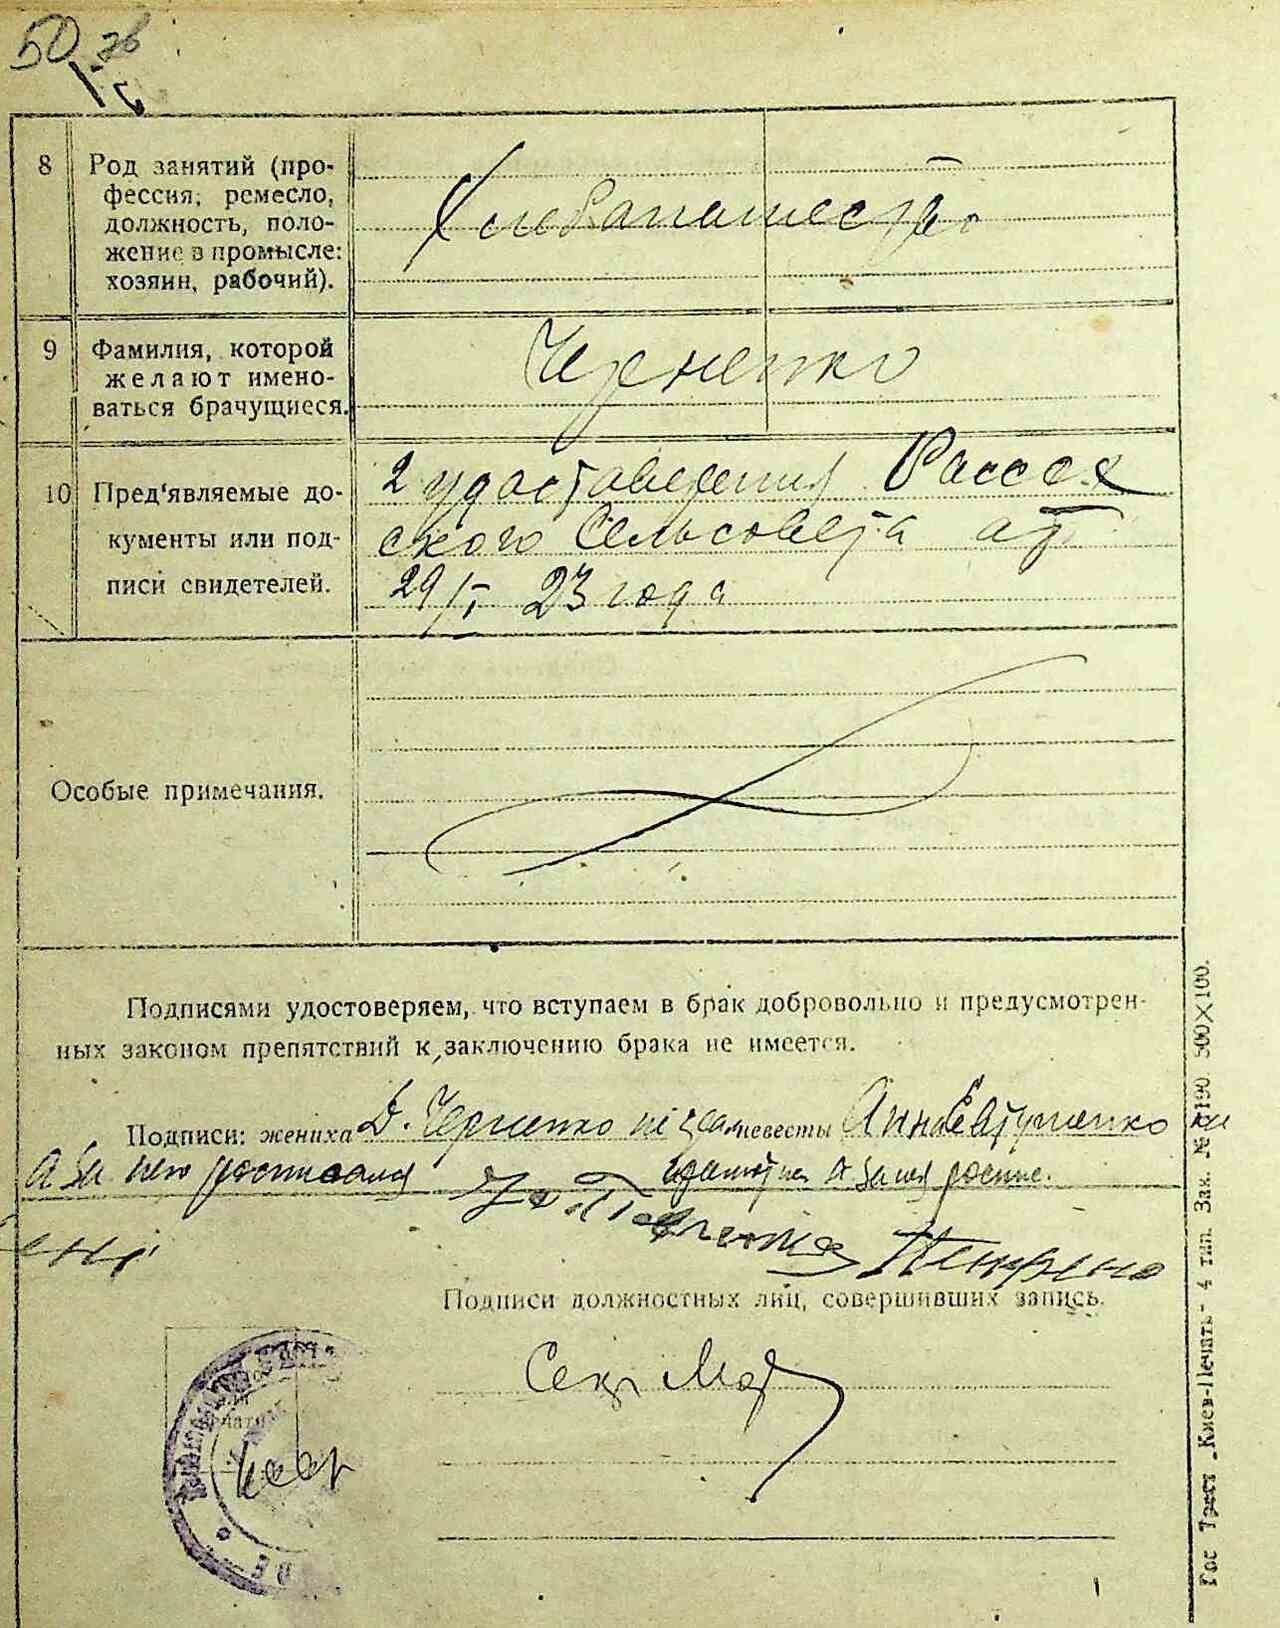 50 зв
8 Род занятий (про-
фессия, ремесло,
должность, поло-
жение в промысле:
хозяин, рабочий).
Хлебапашество
9 Фамилия, которой
желают имено-
ваться брачущиеся.
Черненко
10 Пред'являемые до-
кументы или под-
писи свидетелей.
2 удоставерения Рассох
ского Сельсовета от
29/I 23 года
Особые примечания.
Подписями удостоверяем, что вступаем в брак добровольно и предусмотрен-
ных законом препятствий к заключению брака не имеется.
Подписи: жениха Д. Черненко невесты Анна Евтушенко
а за него росписался а за нея роспис.
Подписи должностных лиц, совершивших запись.
Секр
Гос Трест „Киев-Печать" 4 тип. Зак. № 1190 500×100.